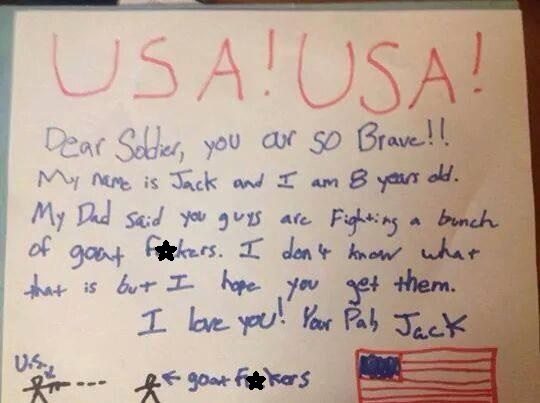 USA! USA!
Dear Soldier, you our so Brave!!
My name is Jack and I am 8 years old.
My Dad said you guys are Fighting a bunch
of goat f★kers. I don't know what
that is but I hope you get them.
I love you! Your Pal, Jack
U.S.
← goat f★kers